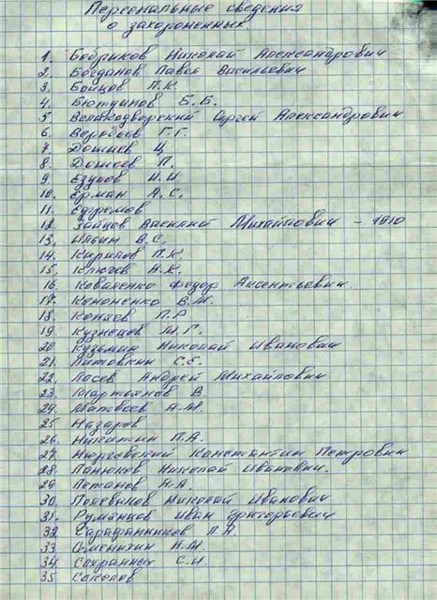 Персональные сведения
о захороненных
1. Бобриков Николай Александрович
2. Богданов Павел Васильевич
3. Бойцов П.К.
4. Б.Б.
5 Великодворский Сергей Александрович
6. Воробьев Г.Г.
7. Дошнев Ц.
8. П.
9. Езупов И.И
10. Ерман А.С.
11. Ефремов
12. Зайцев Василий Михайлович - 1910
13. Ильин В.С.
14. Кирипов П.К.
15. Ключев А.К.
16. Коваленко Федор Аксентьевич.
17. Кононенко В.М.
18. П.Р
19. Кузнецов М.Г.
20. Кузьмин Николай Иванович
21. Литовкин С.Е.
22. Лосев Андрей Михайлович
23. Мартьянов В.
24. Матвеев А.М.
25 Назаров
26. Никитин П.А.
27. Константин Петрович
28. Панюков Николай Иванович.
29. Потапов Я.А.
30. Николай Иванович
31. Румянцев Иван Григорьевич
32 Сарафанников П.А.
33 Н.М.
34 С.И.
35 Соколов